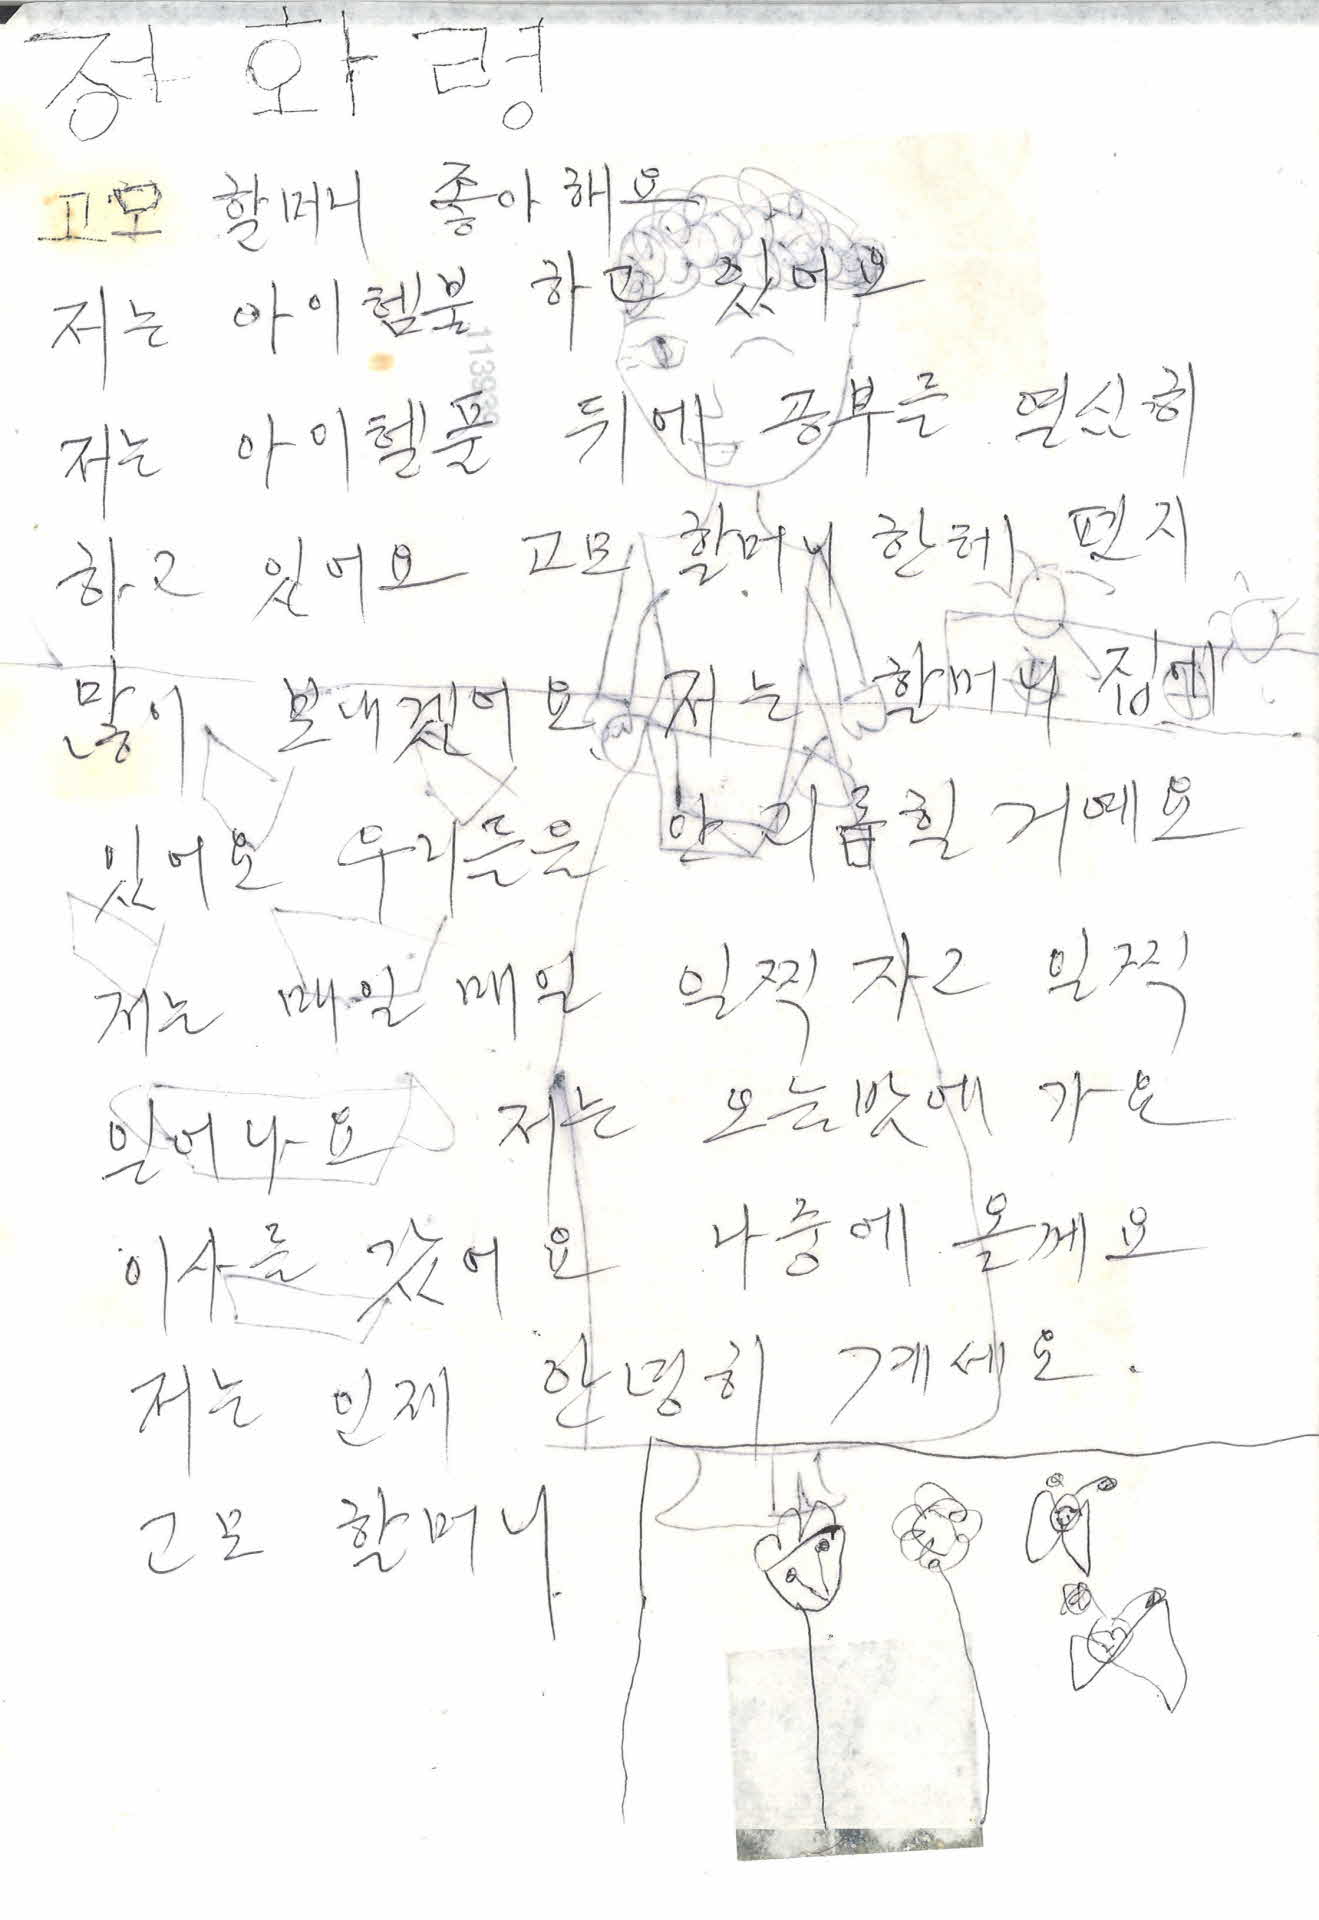 정화령
고모 할머니 좋아해요
저는 아이헴북 하고 있어요
저는 아이헬품 뒤에 공부를 열심히
하고 있어요 고모 할머니 한테 편지
많이 보내겠어요 저는 할머니 집에
있어요 우리들은 안 괴롭힐 거예요
저는 매일 매일 일찍 자고 일찍
일어나요 저는 오늘밧에 가요
이사를 갔어요 나중에 올께요
저는 인제 안녕히 게세요.
고모 할머니
113939